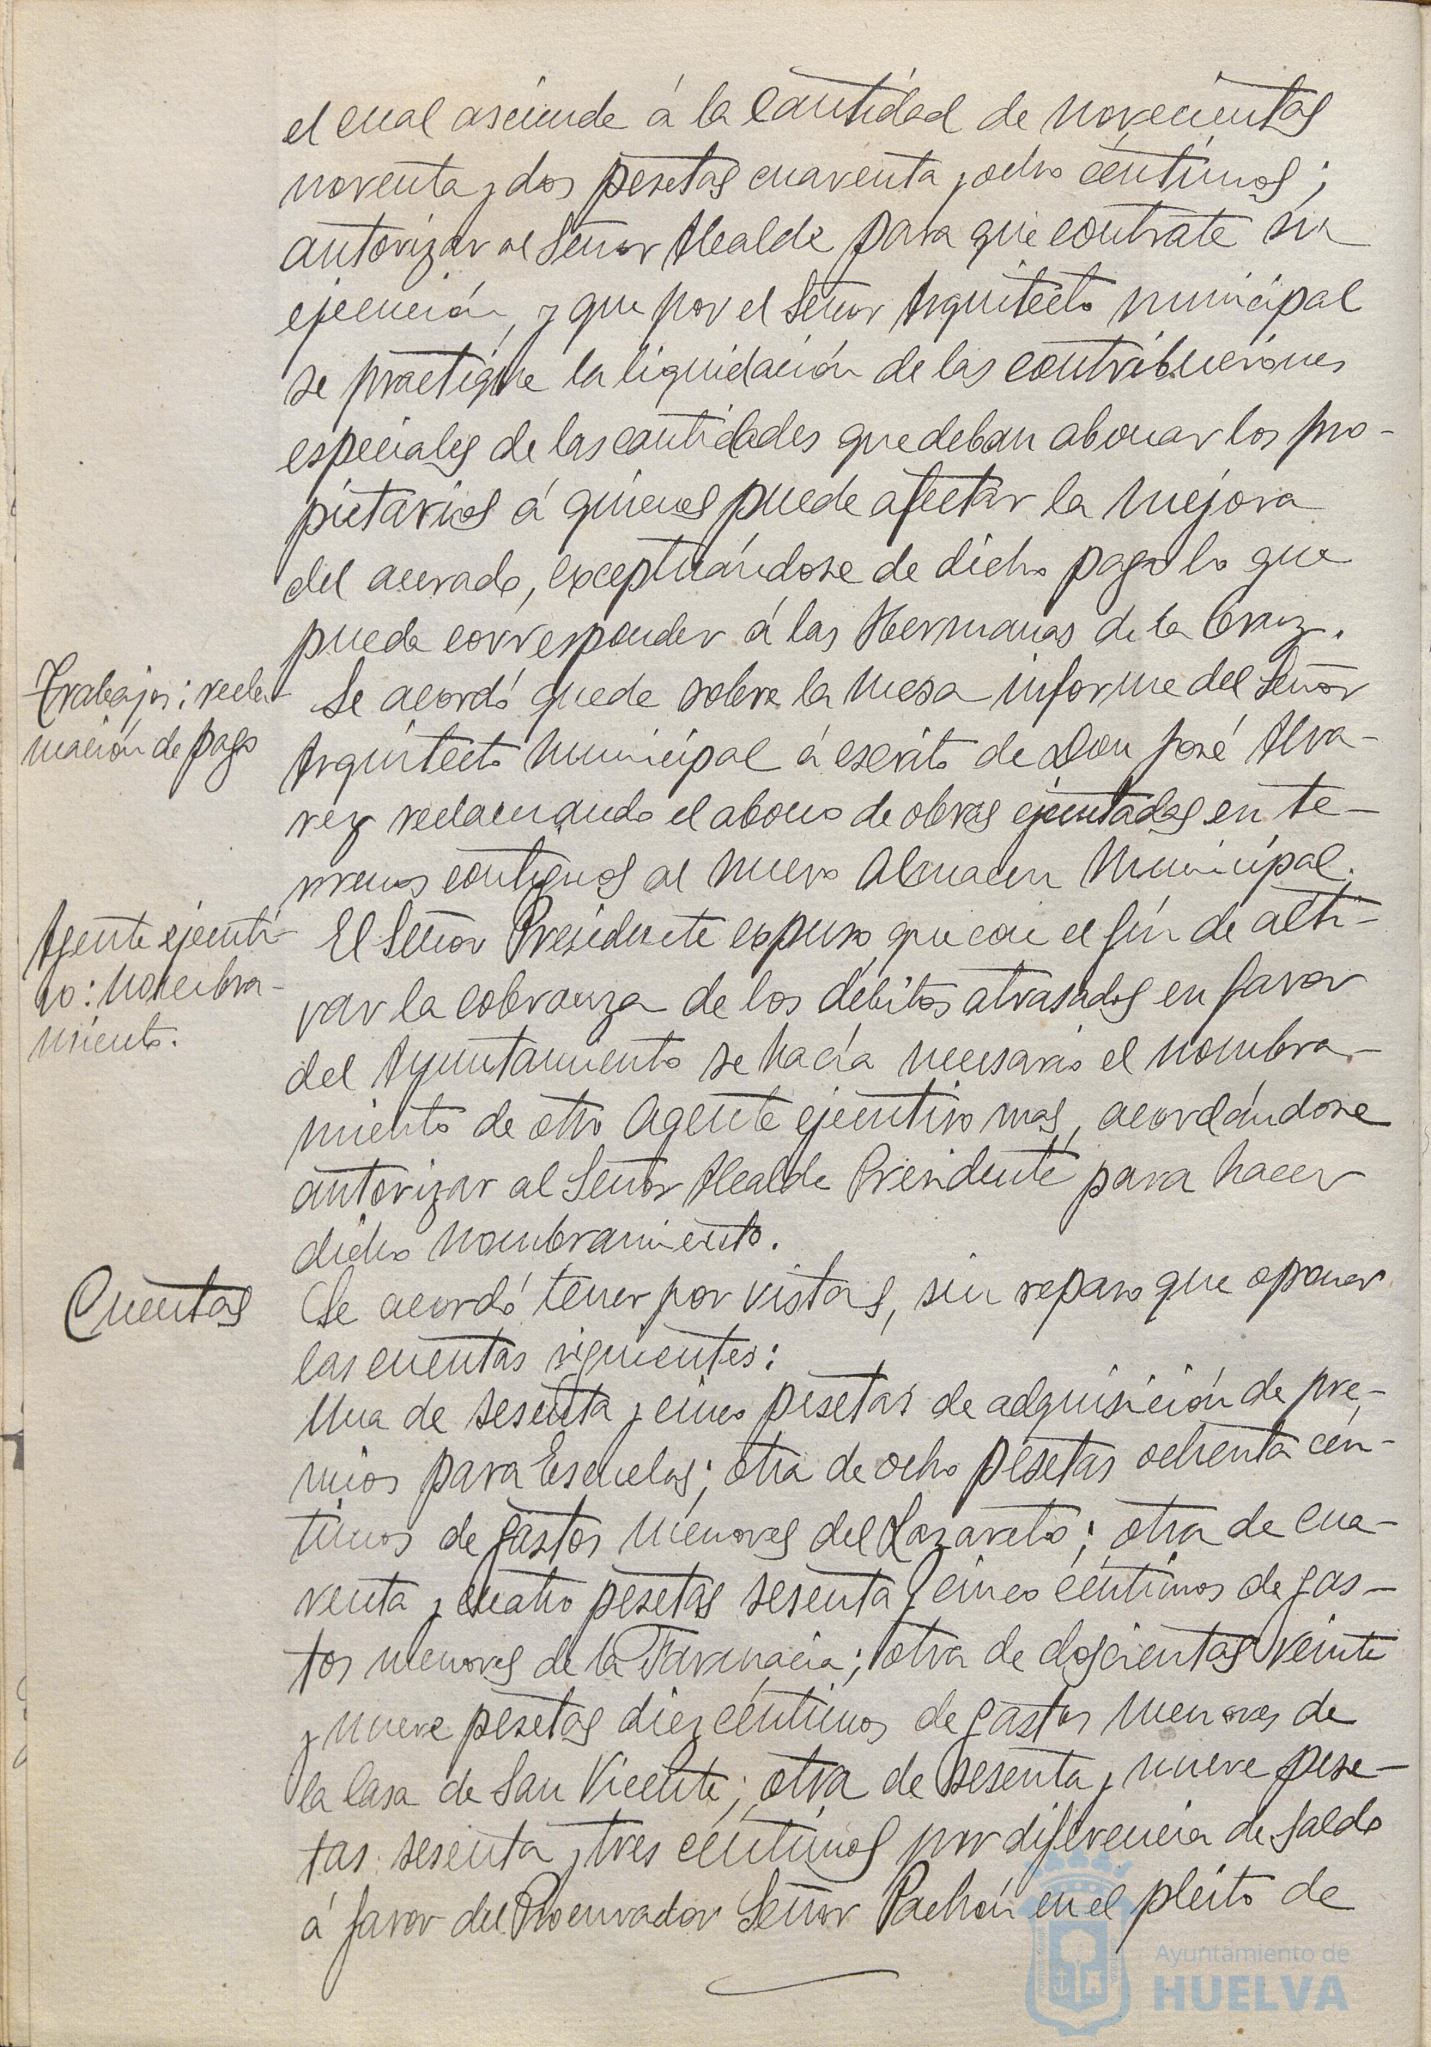 el cual asciende á la cantidad de novecientas
noventa y dos pesetas cuarenta y ocho céntimos;
autorizar al Señor Alcalde para que contrate su
ejecución, y que por el Señor Arquitecto municipal
se practique la liquidación de las contribuciones
especiales de las cantidades que deban abonar los pro-
pietarios á quienes puede afectar la mejora
del acerado, exceptuándose de dicho pago lo que
puede corresponder á las Hermanas de la Cruz.
Trabajos: recla-
mación de pago
Se acordó quede sobre la mesa informe del Señor
Arquitecto Municipal á escrito de Don José Alva-
rez reclamando el abono de obras ejecutadas en te-
rrenos contiguos al nuevo Almacen Municipal.
Agente ejecuti-
vo: nombra-
miento.
El Señor Presidente expuso, que con el fín de acti-
var la cobranza de los débitos atrasados en favor
del Ayuntamiento se hacía necesario el nombra-
miento de otro Agente ejecutivo mas, acordándose
autorizar al Señor Alcalde Presidente para hacer
dicho nombramiento.
Cuentas
Se acordó tener por vistas, sin reparo que oponer
las cuentas siguientes:
Una de sesenta y cinco pesetas de adquisición de pre-
mios para Escuelas; otra de ocho pesetas ochenta cén-
timos de gastos menores del Lazareto; otra de cua-
renta y cuatro pesetas sesenta y cinco céntimos de gas-
tos menores de la Farmacia; otra de doscientas veinte
y nueve pesetas diez céntimos de gastos menores de
la Casa de San Vicente; otra de sesenta y nueve pese-
tas sesenta y tres céntimos por diferencia de saldo
á favor del Procurador Señor Pachón en el pleito de
Ayuntamiento de
HUELVA